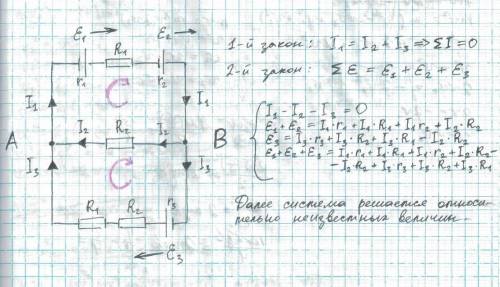 ε₁ → R₁ ε₂ →
r₁ r₂
I₁ I₁
A I₂ R₂ I₂ B
I₃ I₃
R₁ R₂ r₃
← ε₃
1-й закон: I₁ = I₂ + I₃ ⇒ ΣI = 0
2-й закон: Σε = ε₁ + ε₂ + ε₃
I₁ - I₂ - I₃ = 0
ε₁+ε₂ = I₁·r₁+I₁·R₁+I₁·r₂+I₂·R₂
ε₃ = I₃·r₃+I₃·R₂+I₃·R₁-I₂·R₂
ε₁+ε₂+ε₃ = I₁·r₁+I₁·R₁+I₁·r₂+I₂·R₂-
-I₂·R₂+I₃·r₃+I₃·R₂+I₃·R₁
Далее система решается относи-
тельно неизвестных величин.